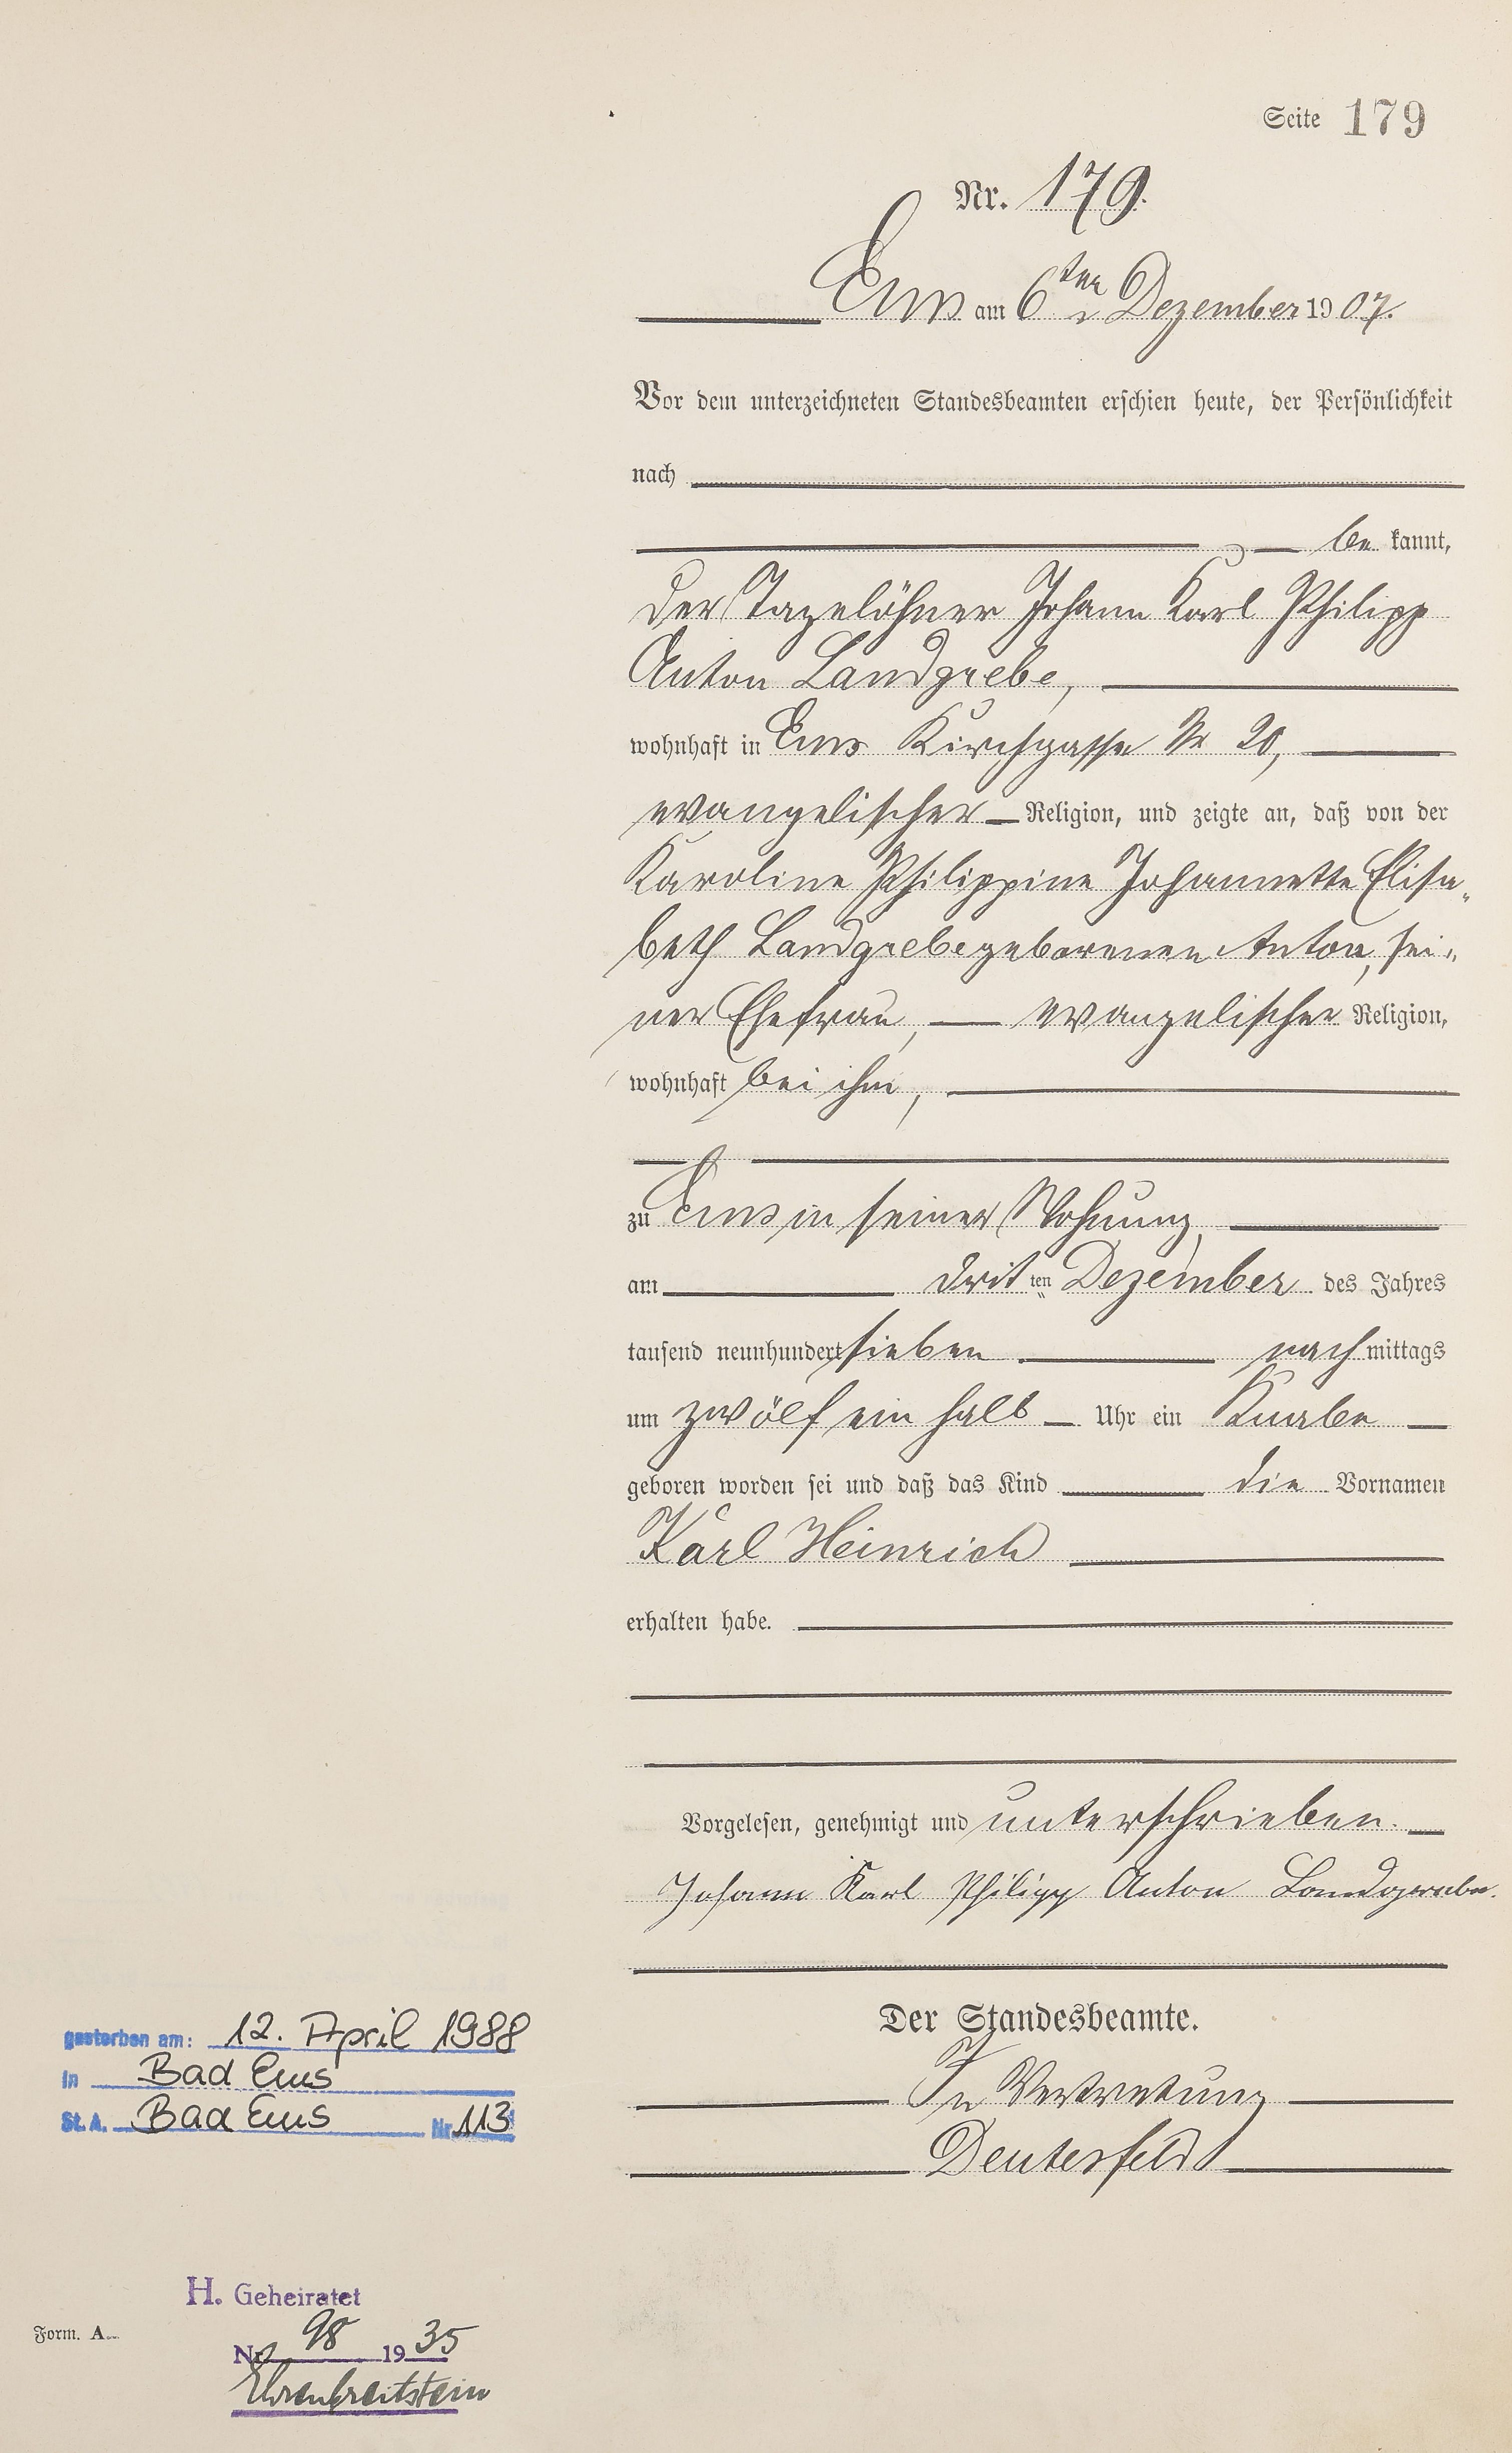 Seite 179
Nr. 179.
Ems am 6ten Dezember 1907.
Vor dem unterzeichneten Standesbeamten erschien heute, der Persönlichkeit
nach
be kannt,
der Tagelöhner Johann Karl Philipp
Anton Landgrebe,
wohnhaft in Ems Kirchgasse Nr 20,
evangelischer Religion, und zeigte an, daß von der
Karoline Philippine Johannette Elisa-
beth Landgrebe geborenen Anton, sei-
ner Ehefrau, evangelischer Religion,
wohnhaft bei ihm,
zu Ems in seiner Wohnung,
am dritten Dezember des Jahres
tausend neunhundert sieben nachmittags
um zwölf ein halb Uhr ein Knabe
geboren worden sei und daß das Kind die Vornamen
Karl Heinrich
erhalten habe.
Vorgelesen, genehmigt und unterschrieben.
Johann Karl Philipp Anton Landgrebe.
Der Standesbeamte.
In Vertretung
Deutesfeldt
gestorben am: 12. April 1988
in Bad Ems
St. A. Bad Ems Nr. 113
H. Geheiratet
Nr. 98 1935
Ehrenbreitstein
Form. A.